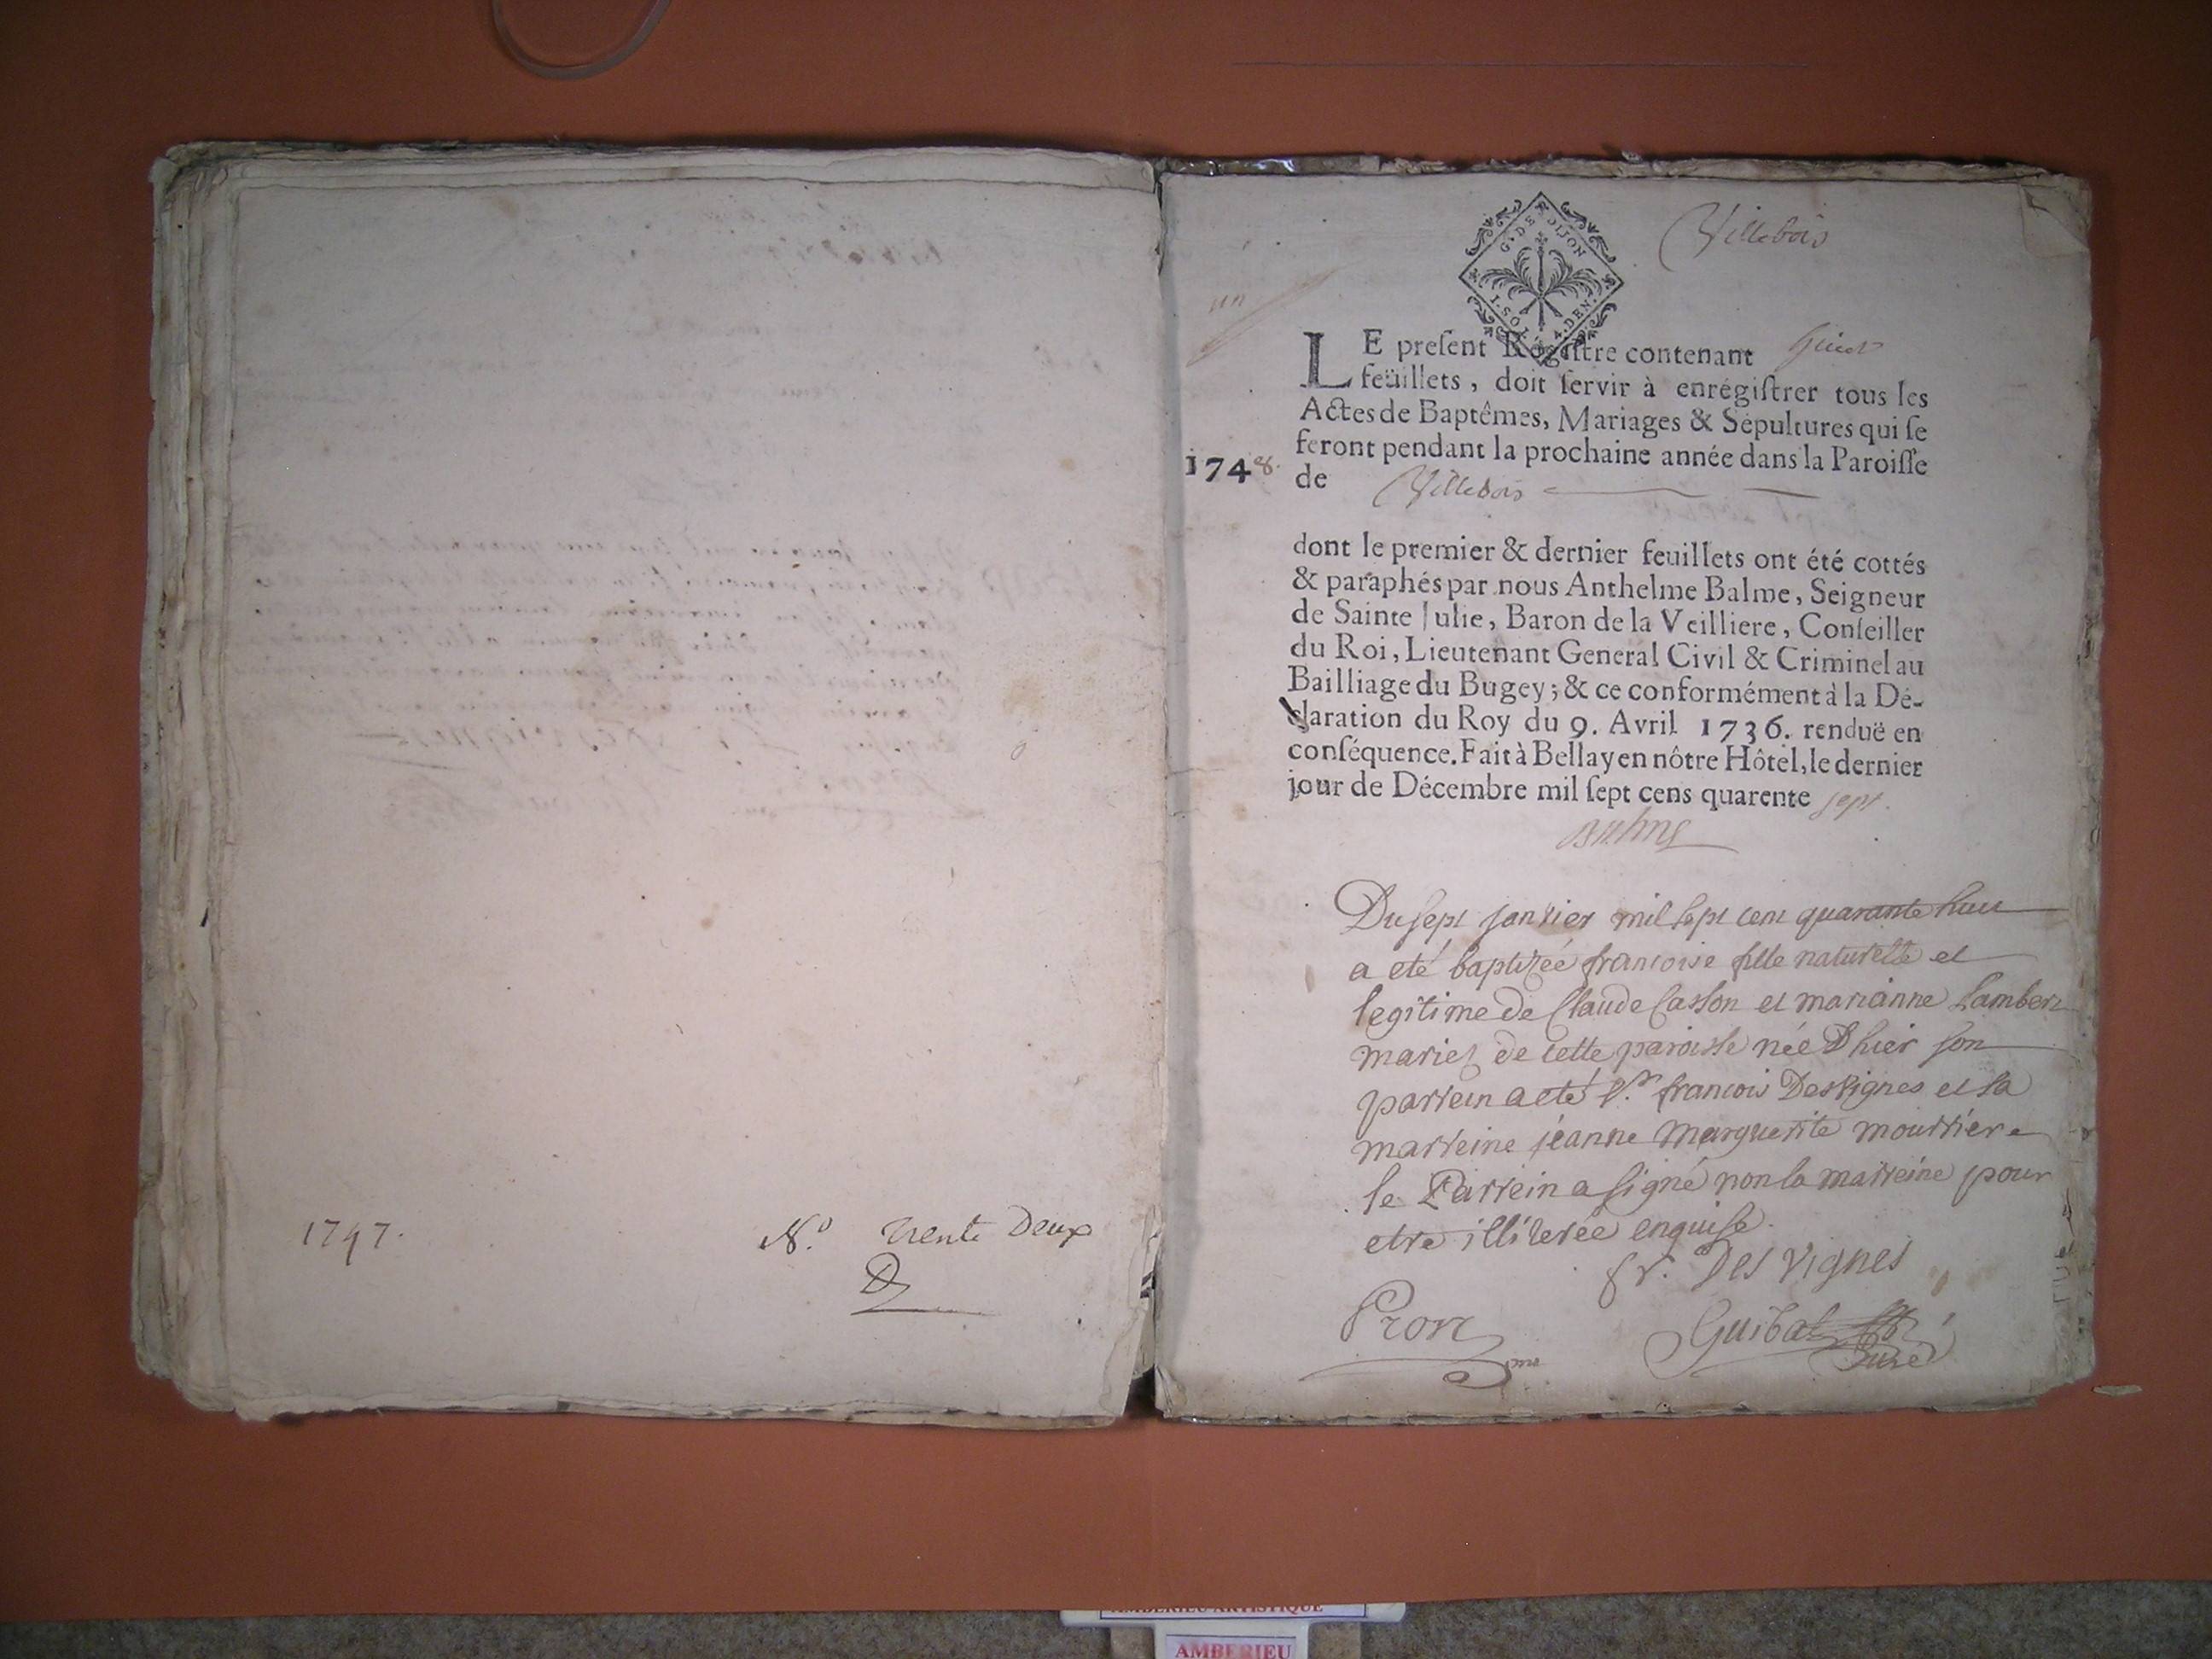 1747.
N.º trente Deux
Villebois
G. DE DIJON
un
LE preſent Régiſtre contenant
feüillets, doit ſervir à enrégiſtrer tous les
Actes de Baptêmes, Mariages & Sépultures qui ſe
feront pendant la prochaine année dans la Paroiſſe
1748.
de Villebois
dont le premier & dernier feuillets ont été cottés
& paraphés par nous Anthelme Balme, Seigneur
de Sainte Julie, Baron de la Veilliere, Conſeiller
du Roi, Lieutenant General Civil & Criminel au
Bailliage du Bugey; & ce conformément à la Dé-
claration du Roy du 9. Avril 1736. renduë en
conſéquence. Fait à Bellay en nôtre Hôtel, le dernier
jour de Décembre mil ſept cens quarente sept.
Balme
Du sept janvier mil sept cent quarante huit
a eté baptizée francoise fille naturelle et
legitime de Claude Casson et marianne Lambert
mariez de cette paroisse née D'hier son
parrein a eté Sr. francois Desvignes et sa
marreine jeanne Marguerite mourriere
le Parrein a signé non la marreine pour
etre illiterée enquise.
fr. Des Vignes
Guibal
Curé
AMBERIEU ARTISTIQUE
AMBERIEU